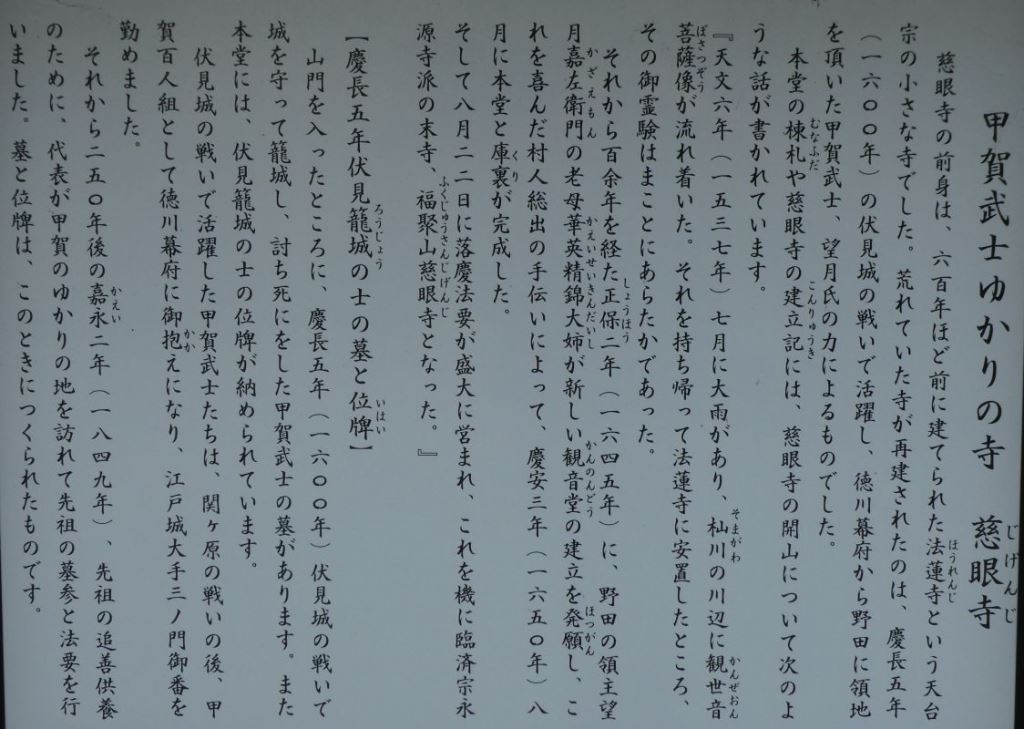 甲賀武士ゆかりの寺 慈眼寺
慈眼寺の前身は、六百年ほど前に建てられた法蓮寺という天台
宗の小さな寺でした。荒れていた寺が再建されたのは、慶長五年
(一六〇〇年)の伏見城の戦いで活躍し、徳川幕府から野田に領地
を頂いた甲賀武士、望月氏の力によるものでした。
本堂の棟札や慈眼寺の建立記には、慈眼寺の開山について次のよ
うな話が書かれています。
『天文六年(一五三七年)七月に大雨があり、杣川の川辺に観世音
菩薩像が流れ着いた。それを持ち帰って法蓮寺に安置したところ、
その御霊験はまことにあらたかであった。
それから百余年を経た正保二年(一六四五年)に、野田の領主望
月嘉左衛門の老母華英精錦大姉が新しい観音堂の建立を発願し、こ
れを喜んだ村人総出の手伝いによって、慶安三年(一六五〇年)八
月に本堂と庫裏が完成した。
そして八月二二日に落慶法要が盛大に営まれ、これを機に臨済宗永
源寺派の末寺、福聚山慈眼寺となった。』
【慶長五年伏見籠城の士の墓と位牌】
山門を入ったところに、慶長五年(一六〇〇年)伏見城の戦いで
城を守って籠城し、討ち死にをした甲賀武士の墓があります。また
本堂には、伏見籠城の士の位牌が納められています。
伏見城の戦いで活躍した甲賀武士たちは、関ヶ原の戦いの後、甲
賀百人組として徳川幕府に御抱えになり、江戸城大手三ノ門御番を
勤めました。
それから二五〇年後の嘉永二年(一八四九年)、先祖の追善供養
のために、代表が甲賀のゆかりの地を訪れて先祖の墓参と法要を行
いました。墓と位牌は、このときにつくられたものです。